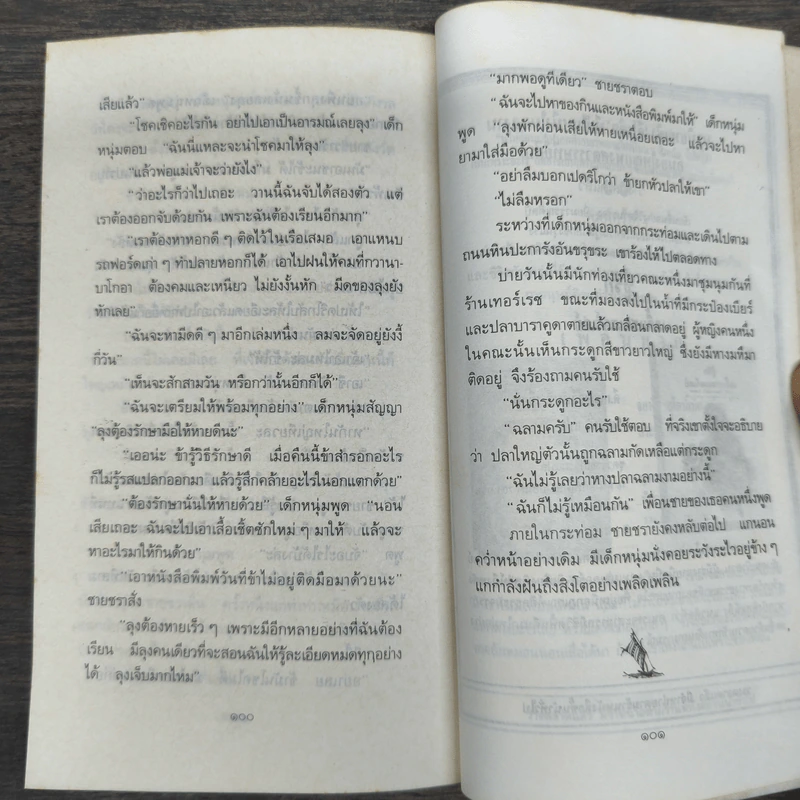 เสียแล้ว"
"โชคเชิคอะไรกัน อย่าไปเอาเป็นอารมณ์เลยลุง" เด็ก
หนุ่มตอบ "ฉันนี่แหละจะนำโชคมาให้ลุง"
"แล้วพ่อแม่เจ้าจะว่ายังไง"
"ว่าอะไรก็ว่าไปเถอะ วานนี้ฉันจับได้สองตัว แต่
เราต้องออกจับด้วยกัน เพราะฉันต้องเรียนอีกมาก"
"เราต้องหาหอกดี ๆ ติดไว้ในเรือเสมอ เอาแหนบ
รถฟอร์ดเก่า ๆ ทำปลายหอกก็ได้ เอาไปฝนให้คมที่กวานา-
บาโกอา ต้องคมและเหนียว ไม่ยังงั้นหัก มีดของลุงยัง
หักเลย"
"ฉันจะหามีดดี ๆ มาอีกเล่มหนึ่ง ลมจะจัดอยู่ยังงี้
กี่วัน"
"เห็นจะสักสามวัน หรือกว่านั้นอีกก็ได้"
"ฉันจะเตรียมให้พร้อมทุกอย่าง" เด็กหนุ่มสัญญา
"ลุงต้องรักษามือให้หายดีนะ"
"เออน่ะ ข้ารู้วิธีรักษาดี เมื่อคืนนี้ข้าสำรอกอะไร
ก็ไม่รู้รสแปลกออกมา แล้วรู้สึกคล้ายอะไรในอกแตกด้วย"
"ต้องรักษานั่นให้หายด้วย" เด็กหนุ่มพูด "นอน
เสียเถอะ ฉันจะไปเอาเสื้อเชิ้ตซักใหม่ ๆ มาให้ แล้วจะ
หาอะไรมาให้กินด้วย"
"เอาหนังสือพิมพ์วันที่ข้าไม่อยู่ติดมือมาด้วยนะ"
ชายชราสั่ง
"ลุงต้องหายเร็ว ๆ เพราะมีอีกหลายอย่างที่ฉันต้อง
เรียน มีลุงคนเดียวที่จะสอนฉันให้รู้ละเอียดหมดทุกๆอย่าง
ได้ ลุงเจ็บมากไหม"
๑๐๐
"มากพอดูทีเดียว" ชายชราตอบ
"ฉันจะไปหาของกินและหนังสือพิมพ์มาให้" เด็กหนุ่ม
พูด "ลุงพักผ่อนเสียให้หายเหนื่อยเถอะ แล้วจะไปหา
ยามาใส่มือด้วย"
"อย่าลืมบอกเปดริโกว่า ข้ายกหัวปลาให้เขา"
"ไม่ลืมหรอก"
ระหว่างที่เด็กหนุ่มออกจากกระท่อมและเดินไปตาม
ถนนหินปะการังอันขรุขระ เขาร้องไห้ไปตลอดทาง
บ่ายวันนั้นมีนักท่องเที่ยวคณะหนึ่งมาชุมนุมกันที่
ร้านเทอร์เรซ ขณะที่มองลงไปในน้ำที่มีกระป๋องเบียร์
และปลาบาราคูดาตายแล้วเกลื่อนกลาดอยู่ ผู้หญิงคนหนึ่ง
ในคณะนั้นเห็นกระดูกสีขาวยาวใหญ่ ซึ่งยังมีหางมหึมา
ติดอยู่ จึงร้องถามคนรับใช้
"นั่นกระดูกอะไร"
"ฉลามครับ" คนรับใช้ตอบ ที่จริงเขาตั้งใจจะอธิบาย
ว่า ปลาใหญ่ตัวนั้นถูกฉลามกัดเหลือแต่กระดูก
"ฉันไม่รู้เลยว่าหางปลาฉลามงามอย่างนี้"
"ฉันก็ไม่รู้เหมือนกัน" เพื่อนชายของเธอคนหนึ่งพูด
ภายในกระท่อม ชายชรายังคงหลับต่อไป แกนอน
คว่ำหน้าอย่างเดิม มีเด็กหนุ่มนั่งคอยระวังระไวอยู่ข้าง ๆ
แกกำลังฝันถึงสิงโตอย่างเพลิดเพลิน
๑๐๑